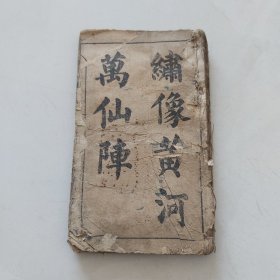 繡像黃河
萬仙陣